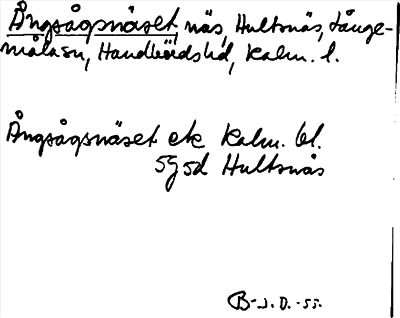 Ångsågsnäset, näs, Hultsnäs, Långe-
måla sn, Handbörds hd, Kalm. l.
Ångsågsnäset ek Kalm. bl.
5g5d Hultsnäs
B-J.D.-55.